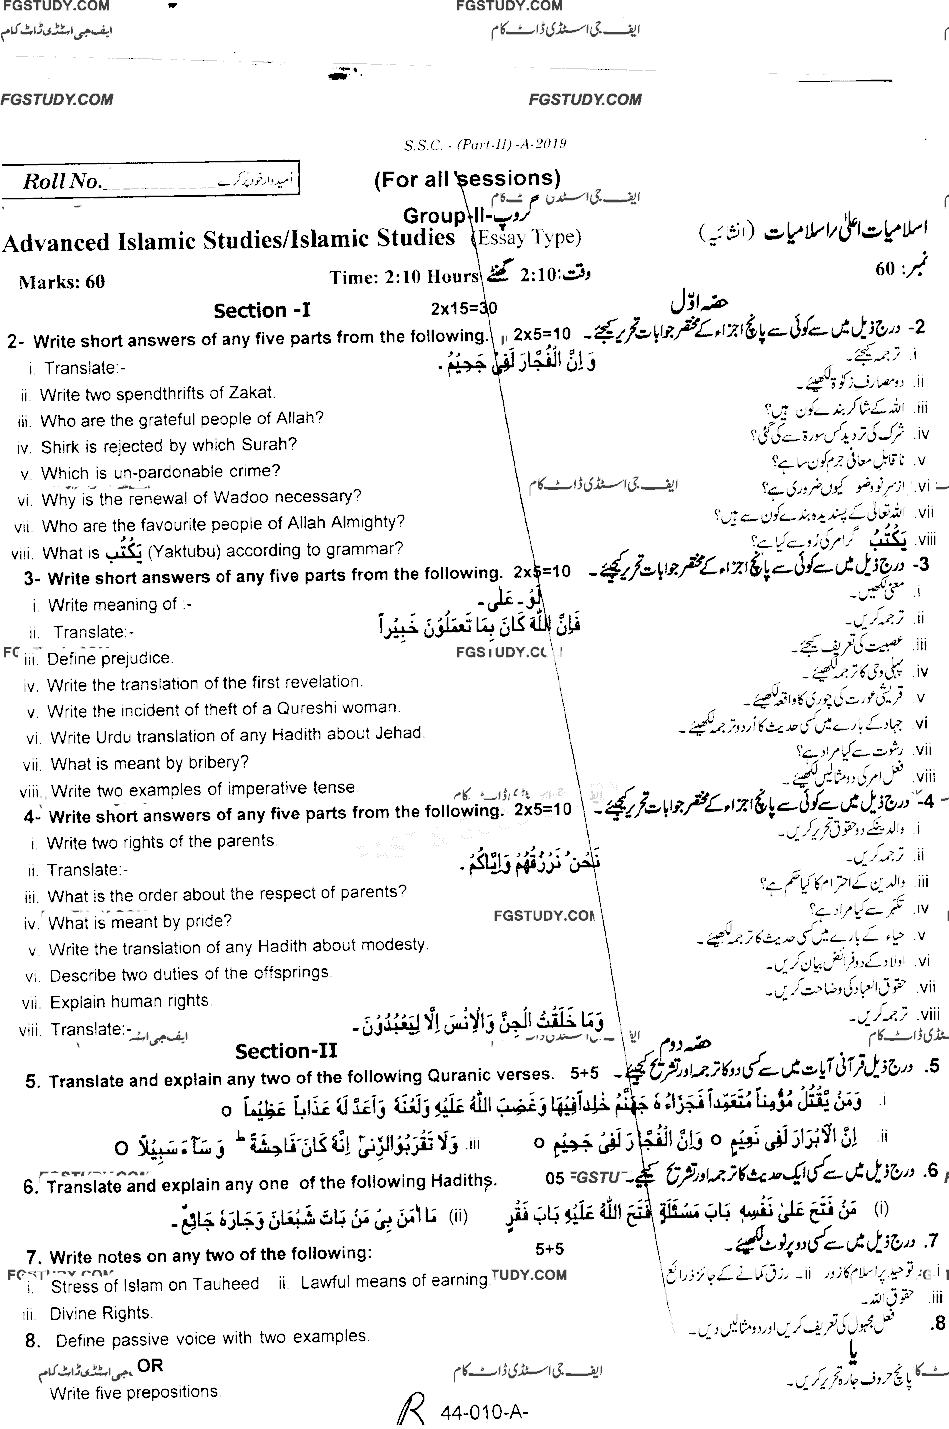 FGSTUDY.COM FGSTUDY.COM
ایف جی اسٹڈی ڈاٹ کام ایف جی اسٹڈی ڈاٹ کام
FGSTUDY.COM FGSTUDY.COM
S.S.C. - (Part-II) -A-2019
Roll No. امیدوار خود پر کرے (For all sessions)
ایف جی اسٹڈی ڈاٹ کام
Group-II-گروپ
Advanced Islamic Studies/Islamic Studies (Essay Type) اسلامیات اعلیٰ/اسلامیات (انشائیہ)
Marks: 60 Time: 2:10 Hours وقت: 2:10 گھنٹے نمبر: 60
Section -I 2x15=30 حصہ اوّل
2- Write short answers of any five parts from the following. 2x5=10 2- درج ذیل میں سے کوئی سے پانچ اجزاء کے مختصر جوابات تحریر کیجئے۔
i. Translate:- وَ اِنَّ الْفُجَّارَ لَفِیْ جَحِیْمٍ . i. ترجمہ کیجئے۔
ii. Write two spendthrifts of Zakat. ii. دو مصارف زکوٰۃ لکھیئے۔
iii. Who are the grateful people of Allah? iii. اللہ کے شاکر بندے کون ہیں؟
iv. Shirk is rejected by which Surah? iv. شرک کی تردید کس سورۃ سے کی گئی؟
v. Which is un-pardonable crime? v. ناقابل معافی جرم کون سا ہے؟
vi. Why is the renewal of Wadoo necessary? ایف جی اسٹڈی ڈاٹ کام vi. ازسرنو وضو کیوں ضروری ہے؟
vii. Who are the favourite people of Allah Almighty? vii. اللہ تعالیٰ کے پسندیدہ بندے کون سے ہیں؟
viii. What is یَکْتُبُ (Yaktubu) according to grammar? viii. یَکْتُبُ گرامر کی رُو سے کیا ہے؟
3- Write short answers of any five parts from the following. 2x5=10 3- درج ذیل میں سے کوئی سے پانچ اجزاء کے مختصر جوابات تحریر کیجئے۔
i. Write meaning of :- لَوْ۔ عَلٰی۔ i. معنی لکھیں۔
ii. Translate:- فَاِنَّ اللّٰہَ کَانَ بِمَا تَعْمَلُوْنَ خَبِیْراً ii. ترجمہ کریں۔
iii. Define prejudice. FGSTUDY.COM iii. عصبیت کی تعریف کیجئے۔
iv. Write the translation of the first revelation. iv. پہلی وحی کا ترجمہ لکھیئے۔
v. Write the incident of theft of a Qureshi woman. v. قریشی عورت کی چوری کا واقعہ لکھیئے۔
vi. Write Urdu translation of any Hadith about Jehad. vi. جہاد کے بارے میں کسی حدیث کا اُردو ترجمہ لکھیئے۔
vii. What is meant by bribery? vii. رشوت سے کیا مراد ہے؟
viii. Write two examples of imperative tense viii. فعل امر کی دو مثالیں لکھیئے۔
4- Write short answers of any five parts from the following. 2x5=10 4- درج ذیل میں سے کوئی سے پانچ اجزاء کے مختصر جوابات تحریر کیجئے۔
i. Write two rights of the parents. i. والدین کے دو حقوق تحریر کریں۔
ii. Translate:- نَحْنُ نَرْزُقُهُمْ وَاِیَّاکُمْ . ii. ترجمہ کریں۔
iii. What is the order about the respect of parents? iii. والدین کے احترام کا کیا حکم ہے؟
iv. What is meant by pride? FGSTUDY.COM iv. تکبّر سے کیا مراد ہے؟
v. Write the translation of any Hadith about modesty. v. حیاء کے بارے میں کسی حدیث کا ترجمہ لکھیئے۔
vi. Describe two duties of the offsprings. vi. اولاد کے دو فرائض بیان کریں۔
vii. Explain human rights. vii. حقوق العباد کی وضاحت کریں۔
viii. Translate:- وَمَا خَلَقْتُ الْجِنَّ وَالْاِنْسَ اِلَّا لِیَعْبُدُوْنَ۔ viii. ترجمہ کریں۔
Section-II حصہ دوم
5. Translate and explain any two of the following Quranic verses. 5+5 5. درج ذیل قرآنی آیات میں سے کسی دو کا ترجمہ اور تشریح کیجئے۔
i. وَمَنْ یَّقْتُلْ مُؤْمِناً مُتَعَمِّداً فَجَزَاءُ ہٗ جَهَنَّمُ خٰلِداً فِیْهَا وَغَضِبَ اللّٰہُ عَلَیْهِ وَلَعَنَهٗ وَاَعَدَّ لَهٗ عَذَاباً عَظِیْماً o
ii. اِنَّ الْاَبْرَارَ لَفِیْ نَعِیْمٍ o وَاِنَّ الْفُجَّارَ لَفِیْ جَحِیْمٍ o iii. وَلَا تَقْرَبُوا الزِّنیٰٓ اِنَّهٗ کَانَ فَاحِشَةً ط وَ سَآءَ سَبِیْلًا o
6. Translate and explain any one of the following Hadiths. 05 6. درج ذیل میں سے کسی ایک حدیث کا ترجمہ اور تشریح کیجئے۔
(i) مَنْ فَتَحَ عَلیٰ نَفْسِهٖ بَابَ مَسْئَلَةٍ فَتَحَ اللّٰہُ عَلَیْهِ بَابَ فَقْرٍ (ii) مَا اٰمَنَ بِیْ مَنْ بَاتَ شَبْعَانَ وَجَارُهٗ جَائِعٌ۔
7. Write notes on any two of the following: 5+5 7. درج ذیل میں سے کسی دو پر نوٹ لکھیئے۔
i. Stress of Islam on Tauheed ii. Lawful means of earning i. توحید پر اسلام کا زور ii- رزق کمانے کے جائز ذرائع
iii. Divine Rights. iii. حقوق اللہ۔
8. Define passive voice with two examples. 8. فعل مجہول کی تعریف کریں اور دو مثالیں دیں۔
OR یا
ایف جی اسٹڈی ڈاٹ کام
Write five prepositions پانچ حروف جارہ تحریر کریں۔
R 44-010-A-